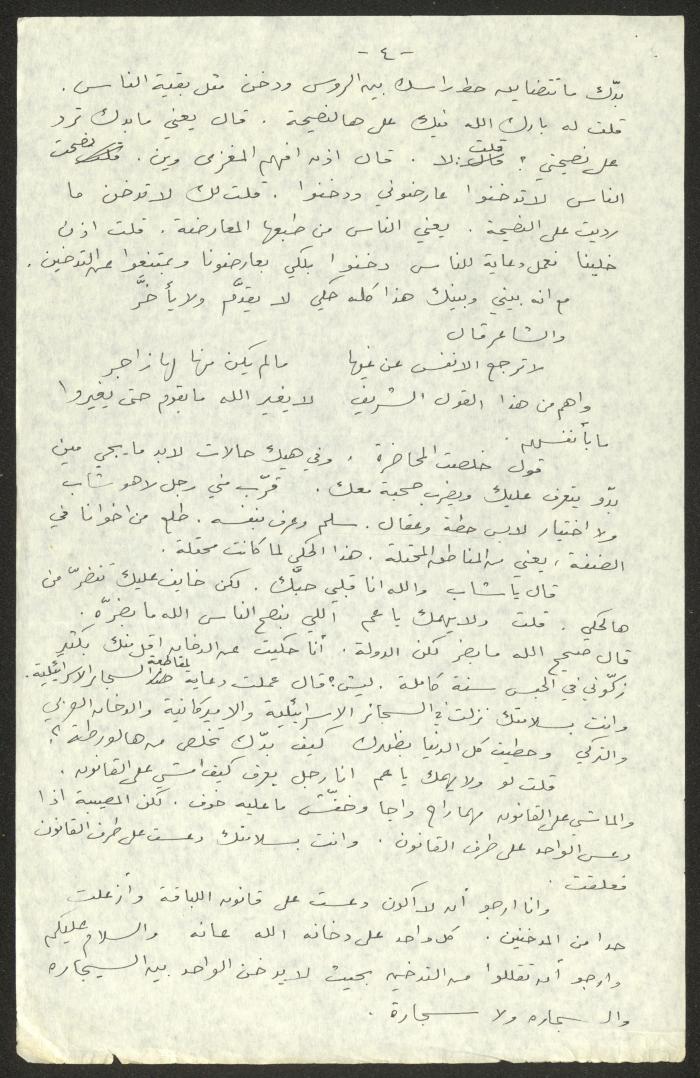 - ٤ -
بدّك ما تتضايق حط راسك بين الروس ودخن مثل بقية الناس.
قلت له بارك الله فيك على هالنصيحة. قال يعني ما بدك ترد
على نصيحتي؟ قلت: لا. قال اذن افهم المغزى وين. نصحت
الناس لا تدخنوا عارضوني ودخنوا. قلت لك لا تدخن ما
رديت على النصيحة. يعني الناس من طبعها المعارضة. قلت اذن
خلينا نعمل دعاية للناس دخنوا بلكي بعارضونا وبمتنعوا عن التدخين.
مع انه بيني وبينك هذا كله حكي لا يقدَّم ولا يأخَّر
والشاعر قال
لا ترجع الانفس عن غيها ما لم يكن منها لها زاجر
واهم من هذا القول الشريف لا يغير الله ما بقوم حتى يغيروا
ما بأنفسهم.
قول خلصت المحاضرة، وفي هيك حالات لابد ما يجي مين
بدّو يتعرف عليك ويضرب صحبة معك. قرّب مني رجل لا هو شاب
ولا اختيار لابس حطة وعقال. سلم وعرف بنفسه. طلع من اخوانا في
الضفة، يعني من المناطق المحتلة. هذا الحكي لما كانت محتلة.
قال يا شاب والله انا قلبي حبّك. لكن خايف عليك تنضرّ من
هالحكي. قلت ولا يهمك يا عم اللي بنصح الناس الله ما بضرّه.
قال صحيح الله ما بضر لكن الدولة. أنا حكيت عن الدخان اقل منك بكتير
زكّوني في الحبس سنة كاملة. ليش؟ قال عملت دعاية لمقاطعة السجاير الاسرائيلية.
وانت بسلامتك نزلت في السجائر الاسرائيلية والاميركانية والدخان العربي
والتركي وحطيت كل الدنيا بظهرك كيف بدّك تخلص من هالورطة؟
قلت لو ولا يهمك يا عم انا رجل بعرف كيف امشي على القانون.
والماشي على القانون مهما راح واجا وخفّش ما عليه خوف. لكن المصيبة اذا
دعس الواحد على طرف القانون. وانت بسلامتك دعست على طرف القانون
فعلقت.
وانا ارجو أن لا اكون دعست على قانون اللباقة وأزعلت
حدا من المدخنين. كل واحد على دخانه الله عانه والسلام عليكم
وارجو أن تقللوا من التدخين بحيث لا يدخن الواحد بين السيجاره
والسجاره ولا سجارة.